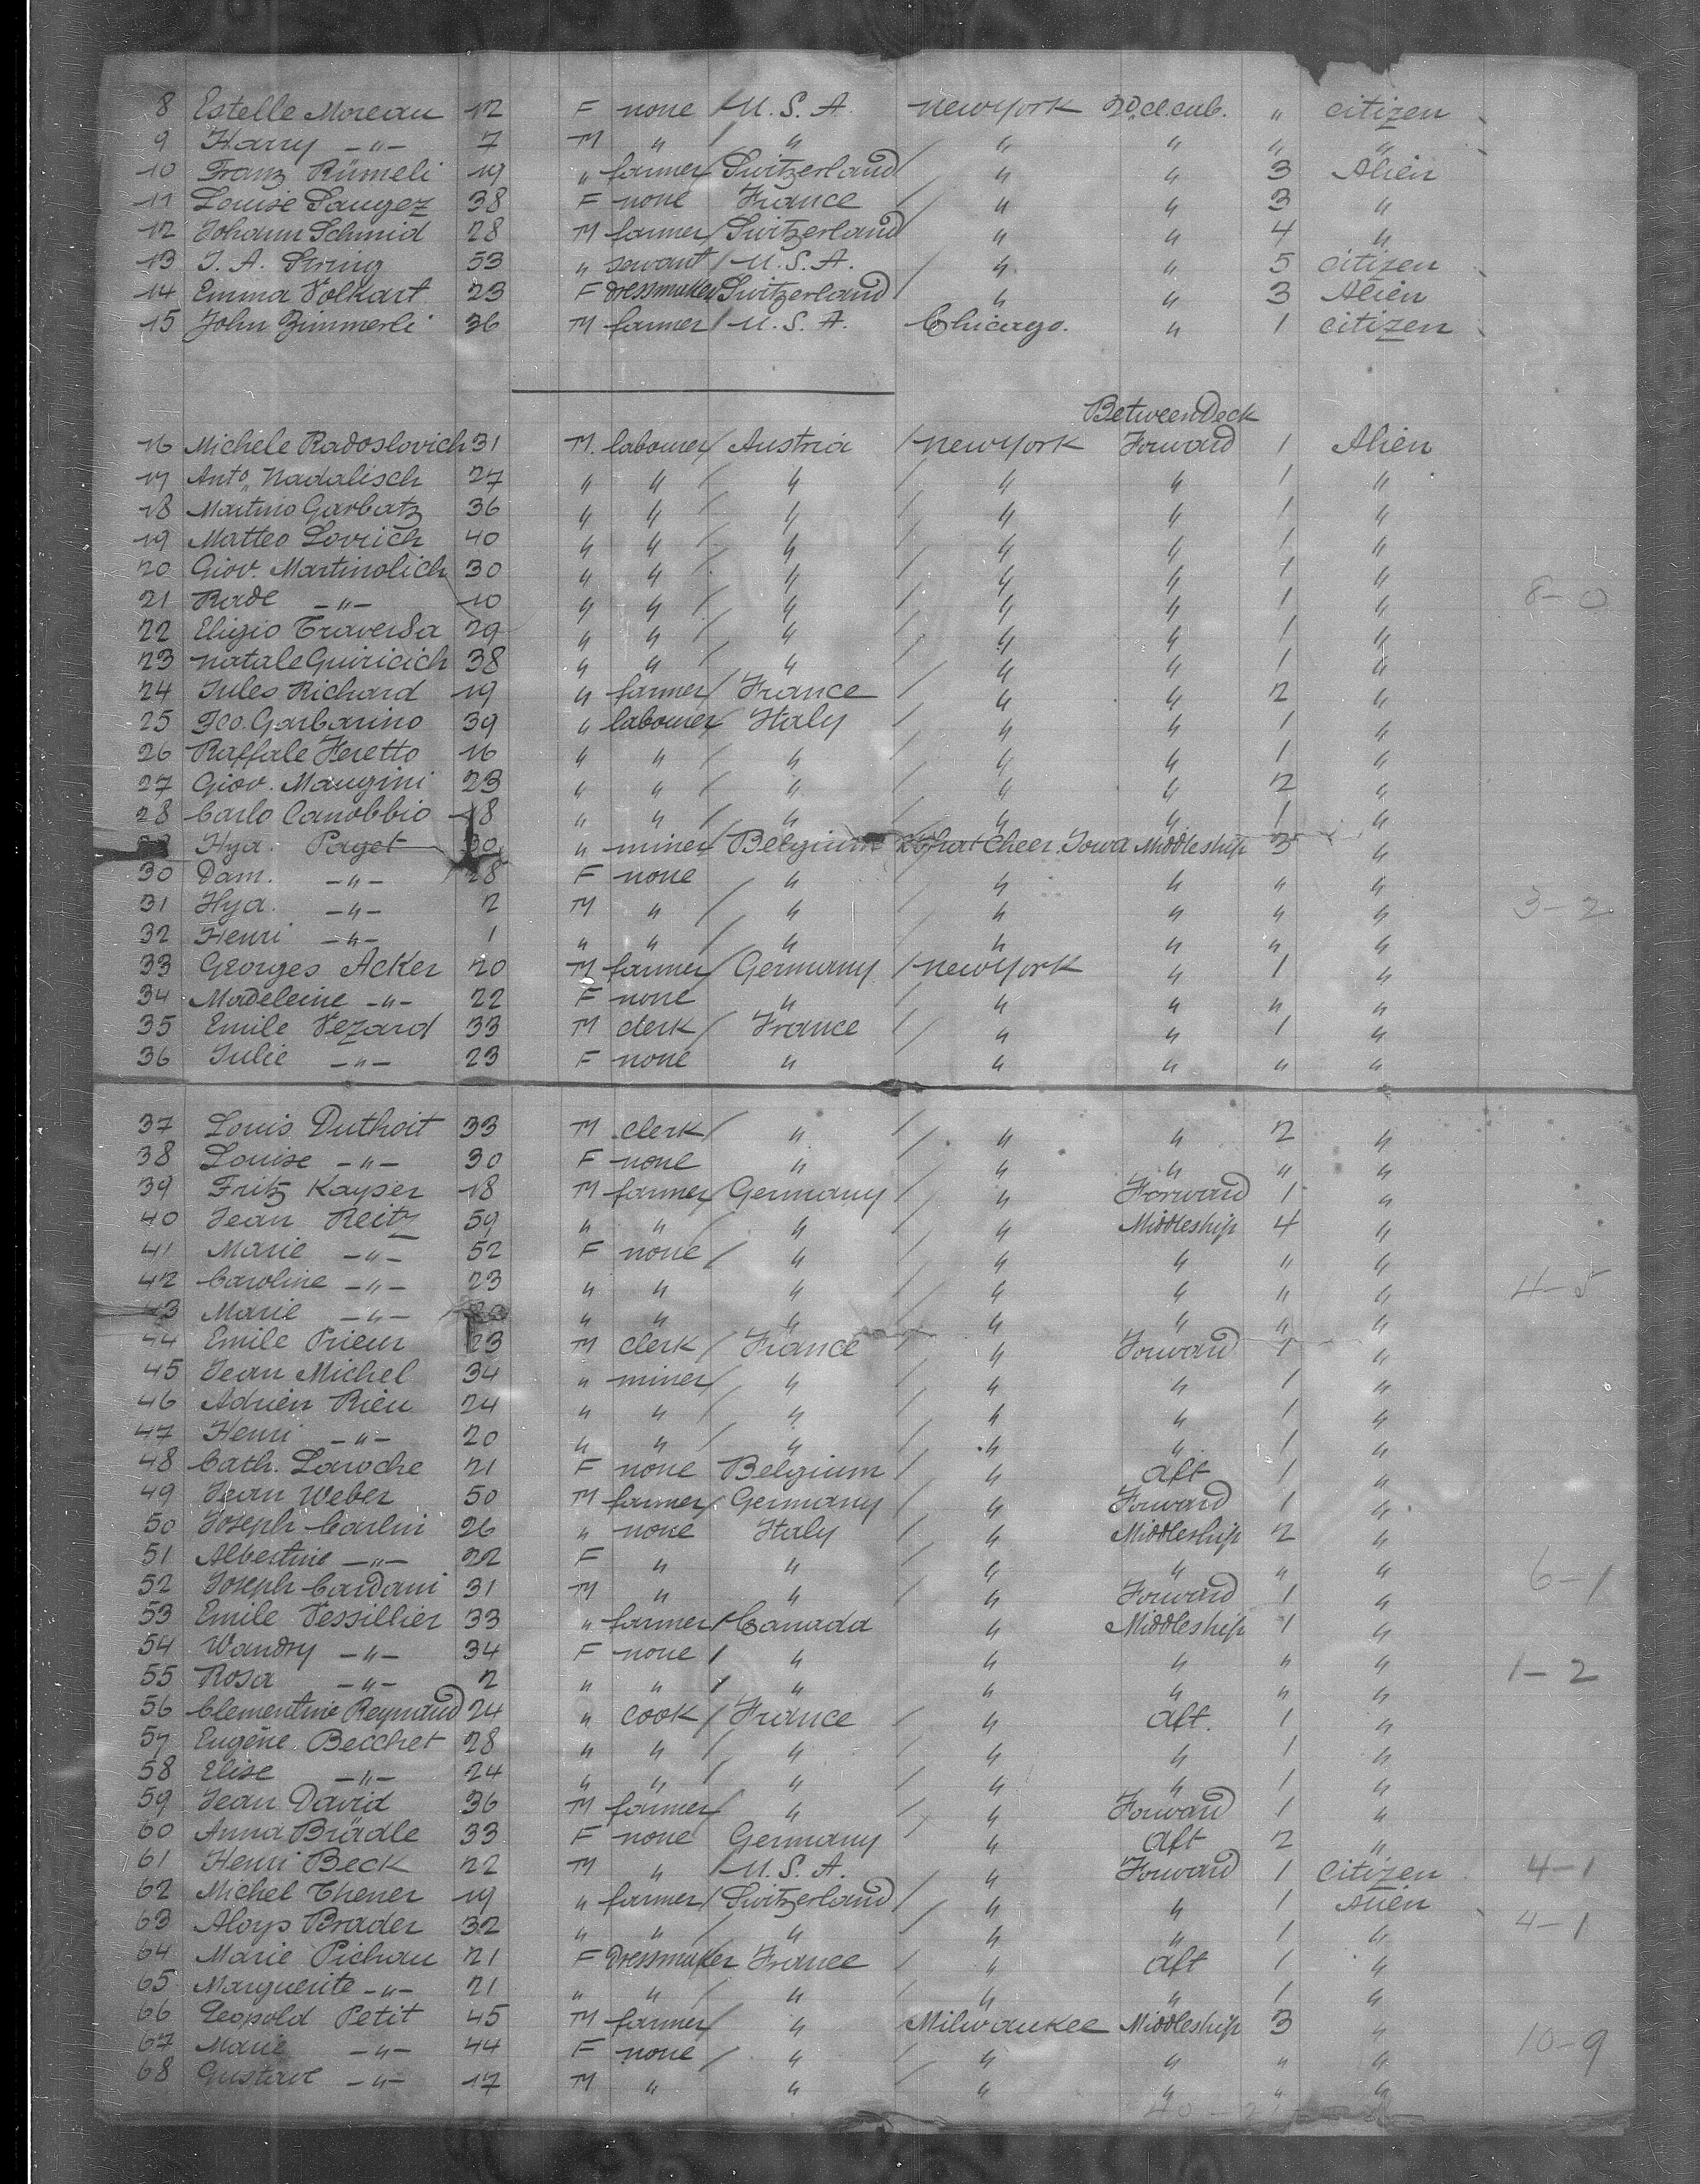 8 Estelle Moreau 12 F none / U.S.A. New York 2D.cl.cub. " citizen
9 Harry -"- 7 M " / " / " " " "
10 Franz Rümeli 19 " farmer / Switzerland / " " 3 Alien
11 Louise Saugez 38 F none France / " " 3 "
12 Johann Schmid 28 M farmer / Switzerland / " " 4 "
13 J. A. String 53 " servant / U.S.A. / " " 5 citizen
14 Emma Volkart 23 F Dressmaker Switzerland / " " 3 Alien
15 John Zimmerli 36 M farmer / U.S.A. Chicago. " 1 citizen
Between Deck
16 Michele Radoslovich 31 M. labourer / Austria / New York Forward 1 Alien
17 Anto. Nadalisch 27 " " / " / " " 1 "
18 Martino Garbatz 36 " " / " / " " 1 "
19 Matteo Lovrich 40 " " / " / " " 1 "
20 Giov. Martinolich 30 " " / " / " " 1 "
21 Rade -"- 10 " " / " / " " 1 " 8-0
22 Eligio Traversa 29 " " / " / " " 1 "
23 Natale Guiricich 38 " " / " / " " 1 "
24 Jules Richard 19 " farmer / France / " " 2 "
25 Gco. Garbarino 39 " labourer / Italy / " " 1 "
26 Raffale Feretto 16 " " / " / " " 1 "
27 Giov. Maugini 23 " " / " / " " 2 "
28 Carlo Canobbio 18 " " / " / " " 1 "
Hya. Paget 30 " miner / Belgium What Cheer. Iowa Middleship 3 "
30 Dam. -"- 28 F none " " " " "
31 Hya. -"- 2 M " / " / " " " " 3-2
32 Henri -"- 1 " " / " / " " " "
33 Georges Acker 20 M farmer / Germany / New York " 1 "
34 Madeleine -"- 22 F none " / " " " "
35 Emile Vezard 33 M clerk / France / " " 1 "
36 Julie -"- 23 F none " / " " " "
37 Louis Duthoit 33 M clerk / " / " " 2 "
38 Louise -"- 30 F none " / " " " "
39 Fritz Kayser 18 M farmer / Germany / " Forward 1 "
40 Jean Reitz 59 " " / " / " Middleship 4 "
41 Marie -"- 52 F none / " / " " " "
42 Caroline -"- 23 " " " / " " " " 4-5
43 Marie -"- " " " / " " " "
44 Emile Prieur 23 M clerk / France / " Forward 1 "
45 Jean Michel 34 " miner / " / " " 1 "
46 Adrien Rieu 24 " " / " / " " 1 "
47 Henri -"- 20 " " / " / " " 1 "
48 Cath. Laroche 21 F none Belgium / " Aft 1 "
49 Jean Weber 50 M farmer / Germany / " Forward 1 "
50 Joseph Carlini 26 " none Italy / " Middleship 2 "
51 Albertine -"- 22 F " " / " " " "
52 Joseph Cardani 31 M " " / " Forward 1 " 6-1
53 Emile Vessillier 33 " farmer / Canada " Middleship 1 "
54 Wandry -"- 34 F none / " " " " "
55 Rosa -"- 2 " " / " " " " " 1-2
56 Clementine Reynaud 24 " cook / France / " Aft. 1 "
57 Eugène Becchet 28 " " / " / " " 1 "
58 Elise -"- 24 " " / " / " " 1 "
59 Jean David 36 M farmer / " / " Forward 1 "
60 Anna Brädle 33 F none Germany / " Aft 2 "
61 Henri Beck 22 M " / U.S.A. / " Forward 1 Citizen 4-1
62 Michel Thener 19 " farmer / Switzerland / " " 1 Alien
63 Aloys Brader 32 " " / " / " " 1 " 4-1
64 Marie Pichau 21 F Dressmaker France / " Aft 1 "
65 Marguerite -"- 21 " " / " / " " 1 "
66 Leopold Petit 45 M farmer / " Milwaukee Middleship 3 "
67 Marie -"- 44 F none / " / " " " " 10-9
68 Gustave -"- 17 M " " / " " " "